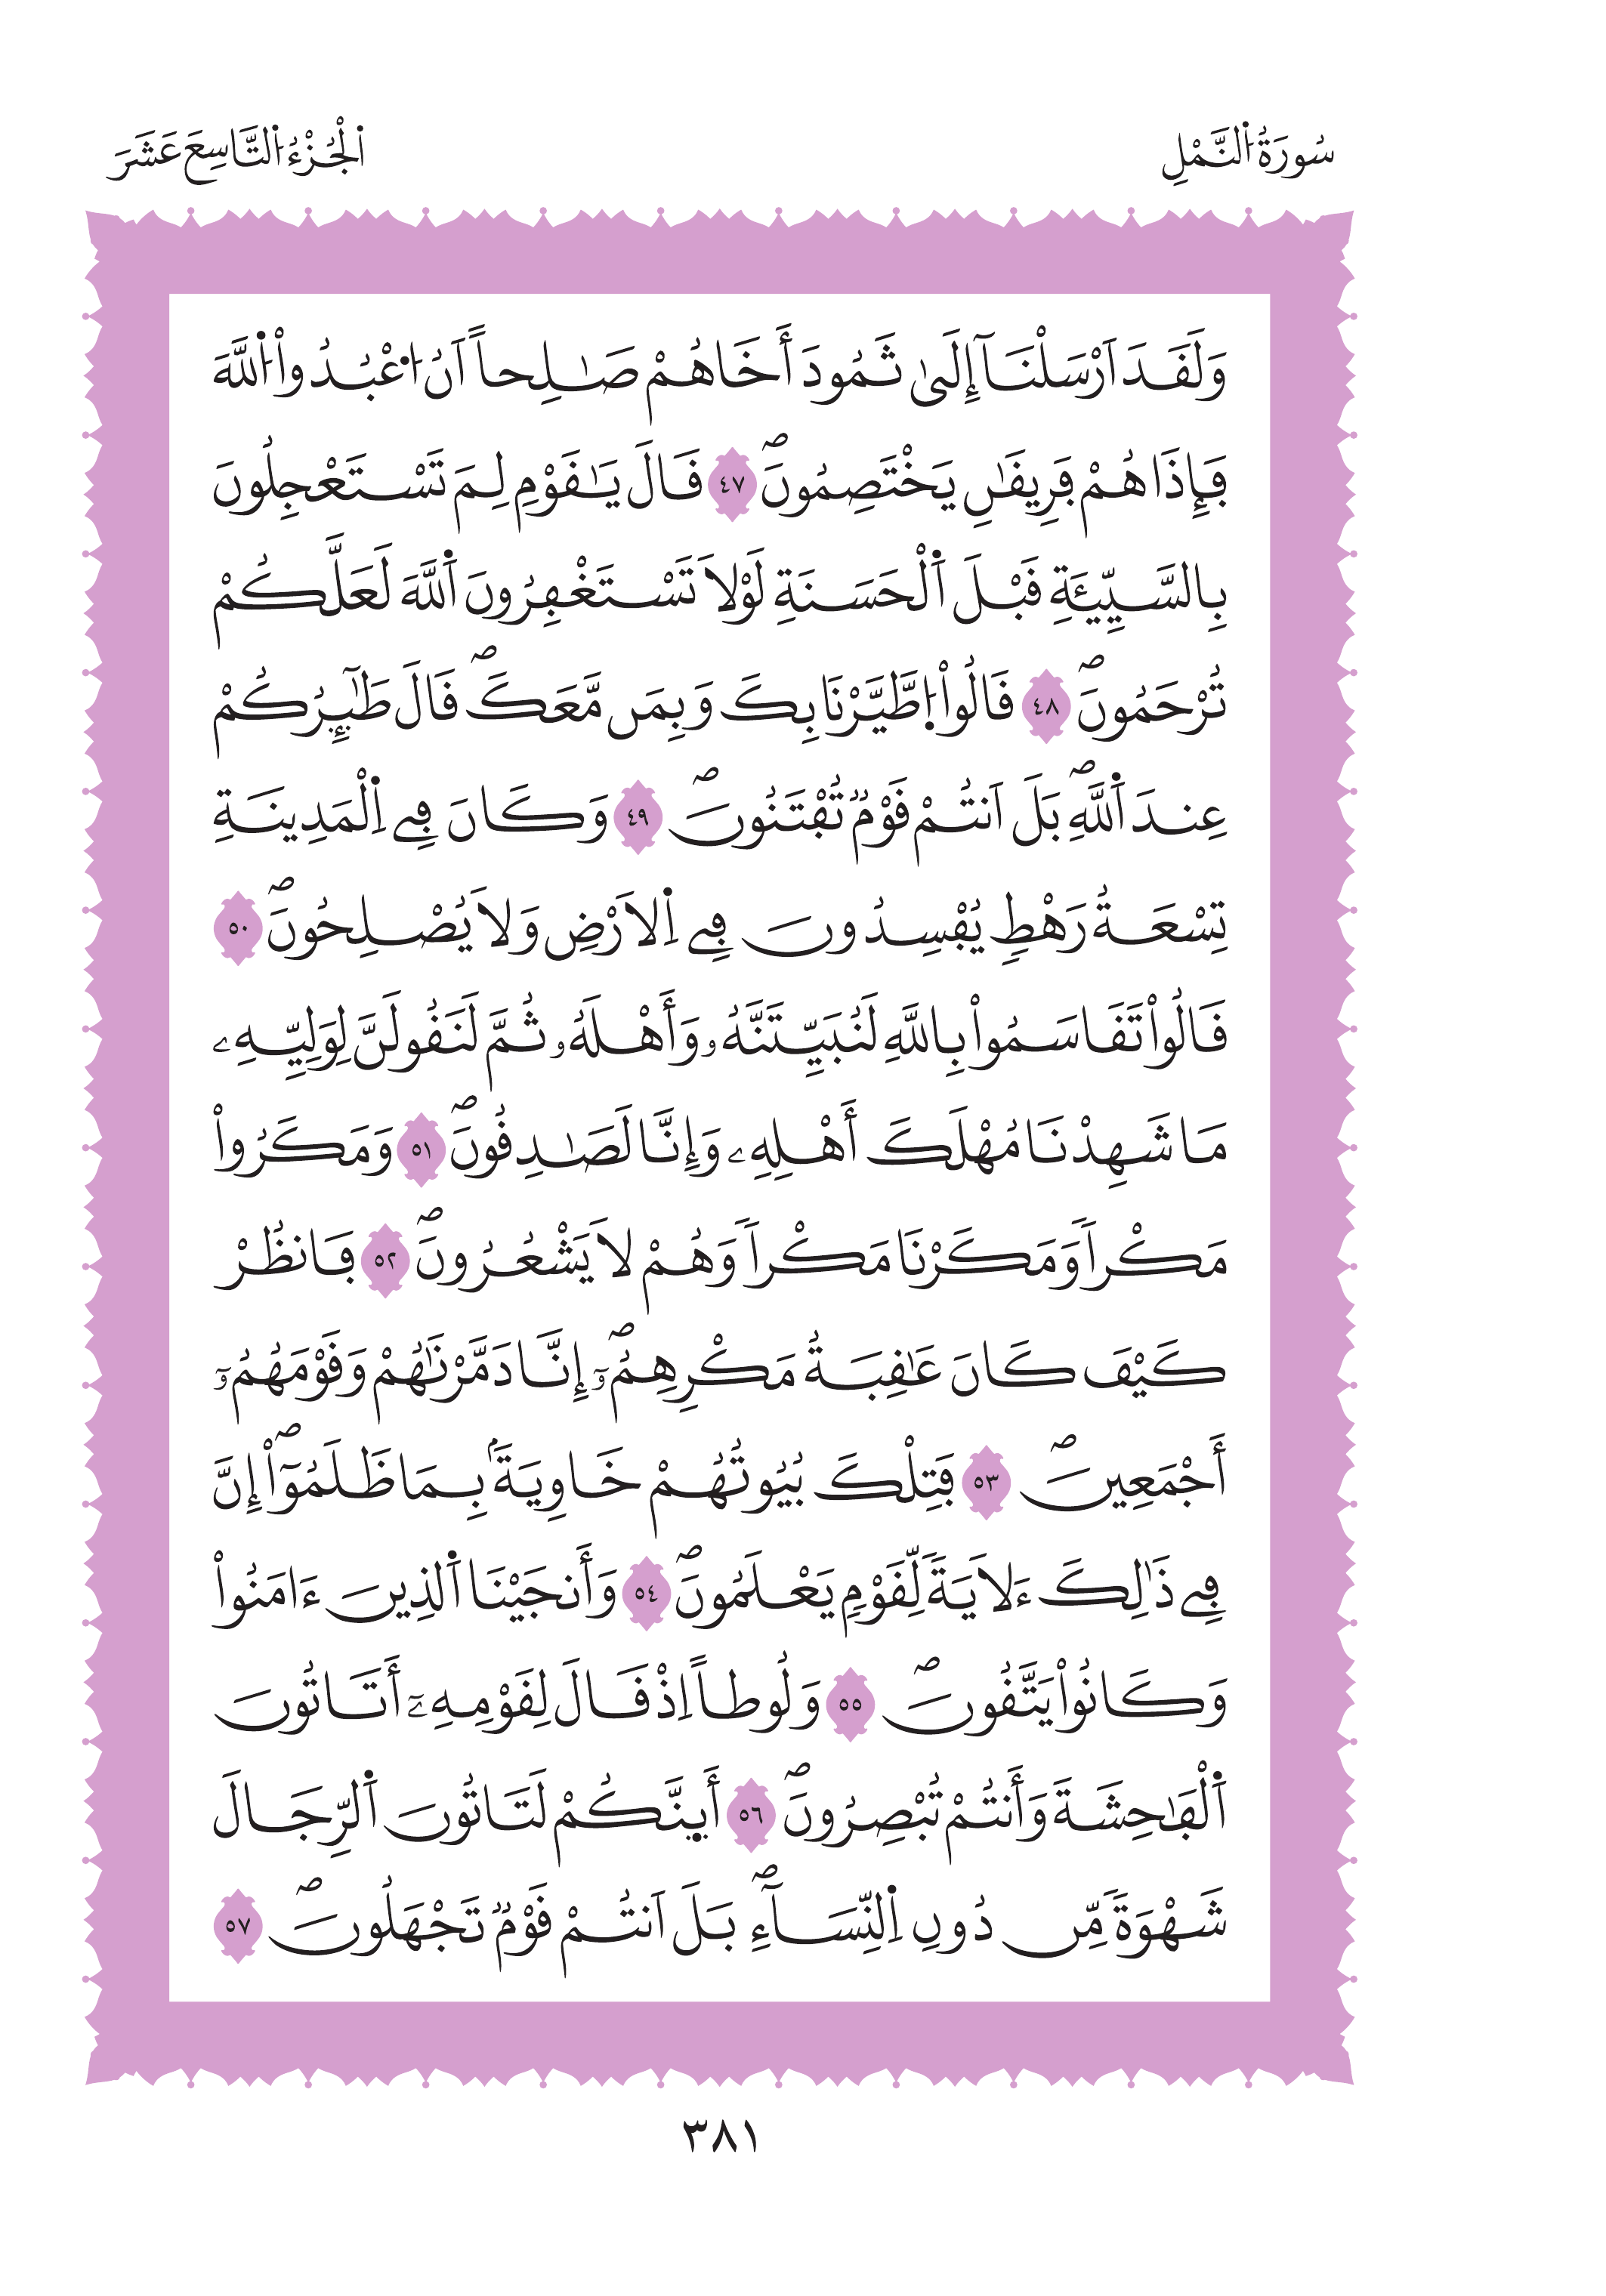 سُورَةُ اُ۬لنَّمْلِ
اَ۬لْجُزْءُ اُ۬لتَّاسِعَ عَشَرَ
وَلَقَدَ اَرْسَلْنَآ إِلَىٰ ثَمُودَ أَخَاهُمْ صَٰلِحاً اَنُ ا۟عْبُدُوا۟ اُ۬للَّهَ
فَإِذَا هُمْ فَرِيقَٰنِ يَخْتَصِمُونَۖ ٤٧ قَالَ يَٰقَوْمِ لِمَ تَسْتَعْجِلُونَ
بِالسَّيِّئَةِ قَبْلَ اَ۬لْحَسَنَةِ لَوْلَا تَسْتَغْفِرُونَ اَ۬للَّهَ لَعَلَّكُمْ
تُرْحَمُونَۖ ٤٨ قَالُوا۟ اُ۪طَّيَّرْنَا بِكَ وَبِمَن مَّعَكَۖ قَالَ طَٰٓئِرُكُمْ
عِندَ اَ۬للَّهِۖ بَلَ اَنتُمْ قَوْمٞ تُفْتَنُونَۖ ٤٩ وَكَانَ فِے اِ۬لْمَدِينَةِ
تِسْعَةُ رَهْطٖ يُفْسِدُونَ فِے اِ۬لَارْضِ وَلَا يُصْلِحُونَۖ ٥٠
قَالُوا۟ تَقَاسَمُوا۟ بِاللَّهِ لَنُبَيِّتَنَّهُۥ وَأَهْلَهُۥ ثُمَّ لَنَقُولَنَّ لِوَلِيِّهِۦ
مَا شَهِدْنَا مُهْلَكَ أَهْلِهِۦ وَإِنَّا لَصَٰدِقُونَۖ ٥١ وَمَكَرُوا۟
مَكْراٗ وَمَكَرْنَا مَكْراٗ وَهُمْ لَا يَشْعُرُونَۖ ٥٢ فَانظُرْ
كَيْفَ كَانَ عَٰقِبَةُ مَكْرِهِمُۥٓۖ إِنَّا دَمَّرْنَٰهُمْ وَقَوْمَهُمُۥٓ
أَجْمَعِينَۖ ٥٣ فَتِلْكَ بُيُوتُهُمْ خَاوِيَةَۢ بِمَا ظَلَمُوٓا۟ۖ إِنَّ
فِے ذَٰلِكَ ءَلَايَةٗ لِّقَوْمٖ يَعْلَمُونَۖ ٥٤ وَأَنجَيْنَا اَ۬لذِينَ ءَامَنُوا۟
وَكَانُوا۟ يَتَّقُونَۖ ٥٥ وَلُوطاً اِذْ قَالَ لِقَوْمِهِۦٓ أَتَاتُونَ
اَ۬لْفَٰحِشَةَ وَأَنتُمْ تُبْصِرُونَۖ ٥٦ أَي۪نَّكُمْ لَتَاتُونَ اَ۬لرِّجَالَ
شَهْوَةٗ مِّن دُونِ اِ۬لنِّسَآءِۖ بَلَ اَنتُمْ قَوْمٞ تَجْهَلُونَۖ ٥٧
٣٨١